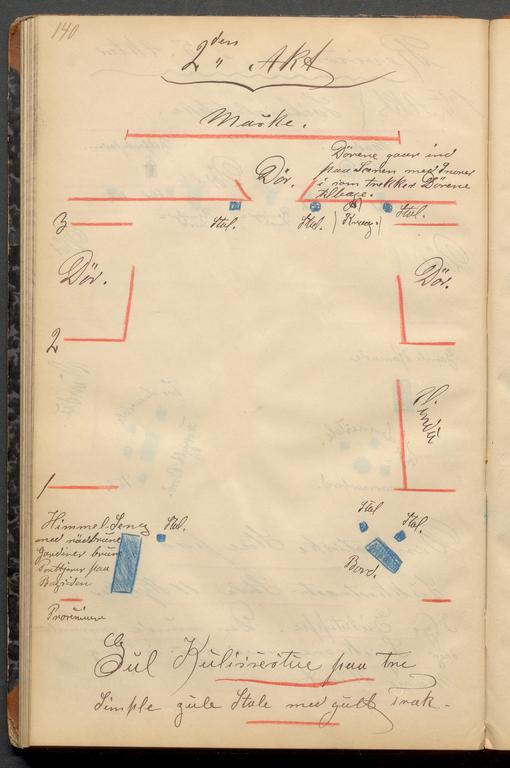 140
2den Akt
Maske.
Dörene gaar ind
paa Scenen med Snorer
i som trekker Dörene
tilbage.
Dör.
Stol.
Stol.
Krog.
Stol.
3
Dör.
Dör.
2
Vindu
1
Himmel-Seng
med rödbrune
Gardiner brun
paa
Bagsiden
Stol.
Stol
Stol.
Bord.
Gul Kulissestue paa tre
Simple gule Stole med gult Træk.